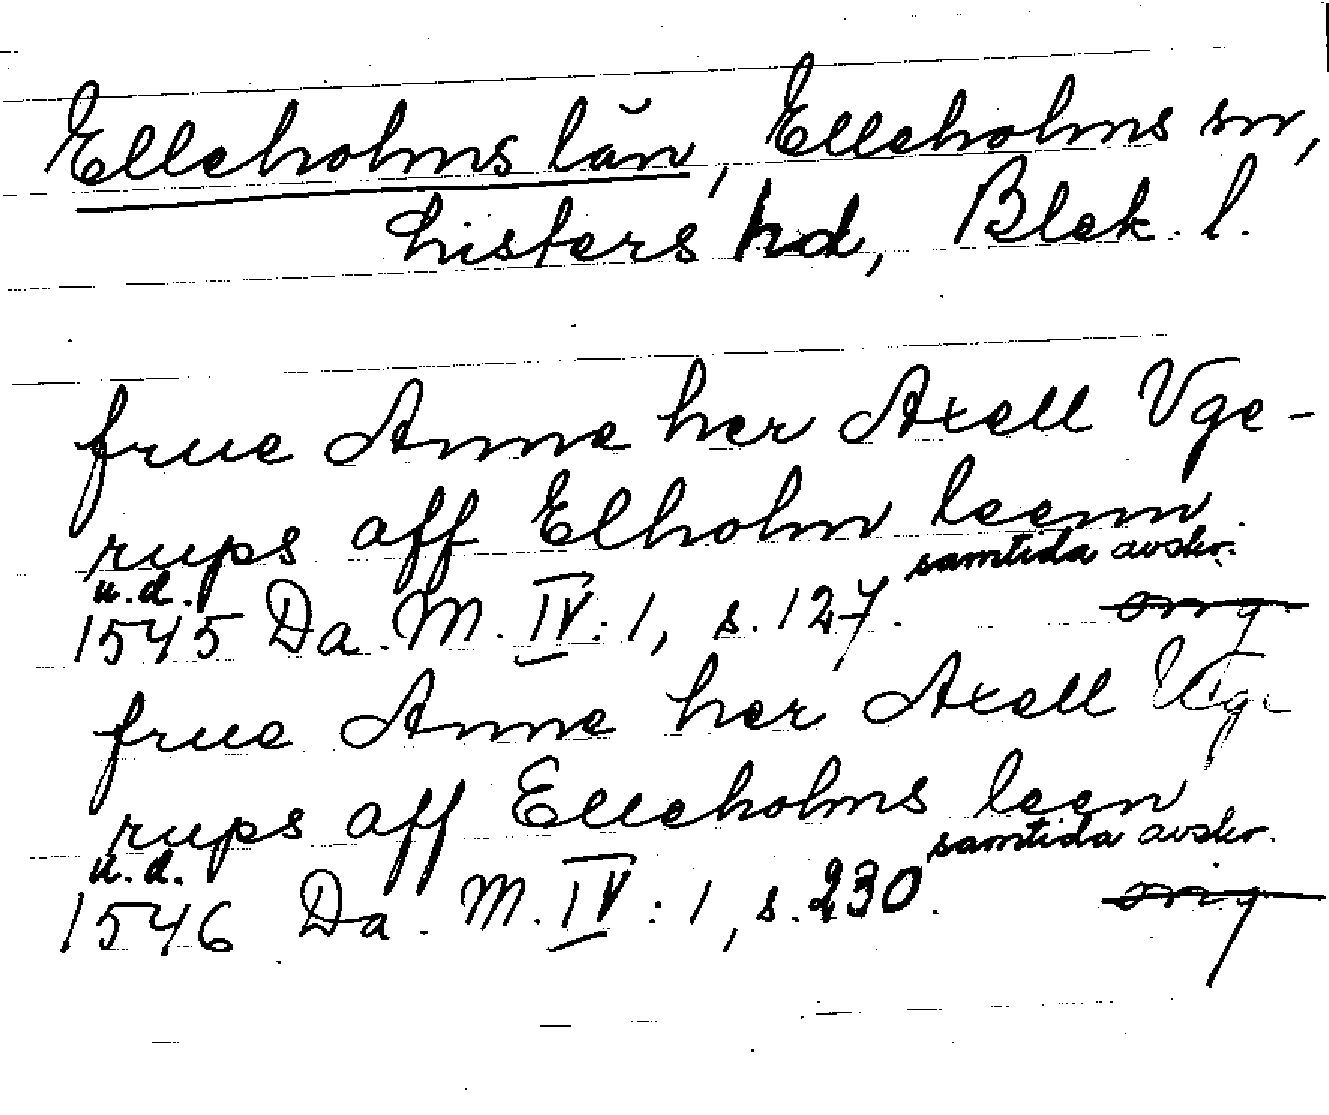 Elleholms län, Elleholms sn,
Listers hd, Blek. l.
frue Anne her Axell Vge-
rups aff Elholm leenn.
samtida avskr.
u.d.
1545 Da. M. IV: 1, s. 127. orig.
frue Anne her Axell Vge
rups aff Elleholms leen
samtida avskr.
u.d.
1546 Da. M. IV: 1, s. 230. orig